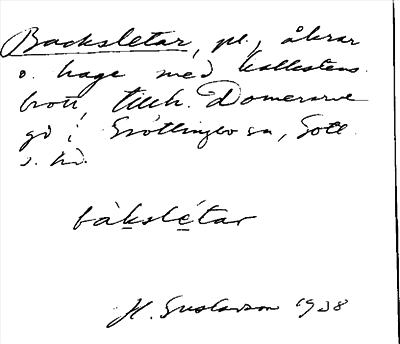 Backsletar, pl., åkrar
o. hage med kalkstens-
brott, tillh. Domerarve
gd i Grötlingbo sn, Gotl.
s. hd.
bàkslétar
H. Gustavson 1938